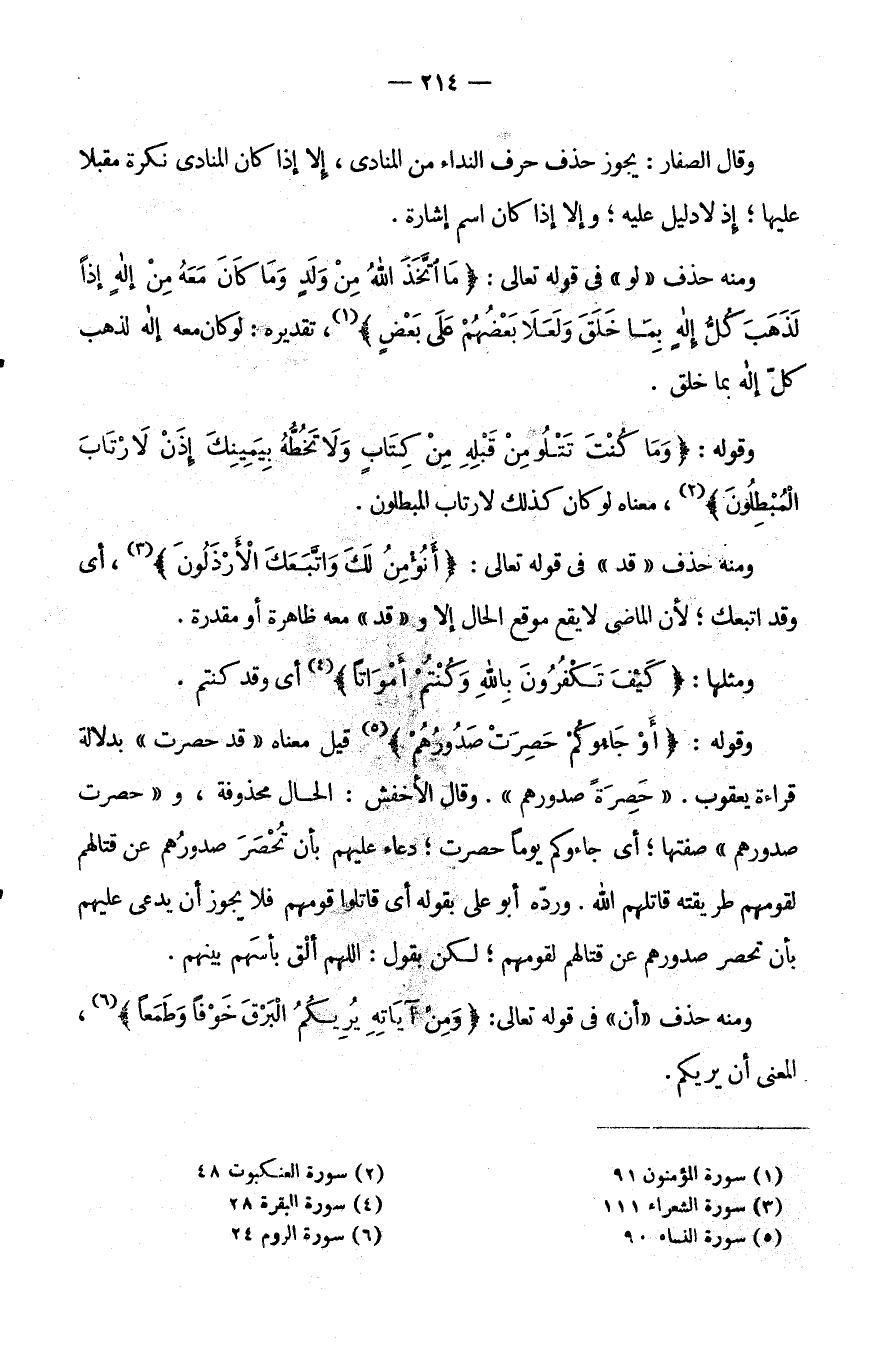 — ٢١٤ —
وقال الصفار : يجوز حذف حرف النداء من المنادى ، إلا إذا كان المنادى نكرة مقبلا
عليها ؛ إذ لا دليل عليه ؛ وإلا إذا كان اسم إشارة .
ومنه حذف « لو » فى قوله تعالى : ﴿ مَا ٱتَّخَذَ اللهُ مِنْ وَلَدٍ وَمَا كَانَ مَعَهُ مِنْ إِلٰهٍ إِذاً
لَذَهَبَ كُلُّ إِلٰهٍ بِمَا خَلَقَ وَلَعَلَا بَعْضُهُمْ عَلَى بَعْضٍ ﴾(١)، تقديره : لوكان معه إلٰه لذهب
كلّ إلٰه بما خلق .
وقوله : ﴿ وَمَا كُنْتَ تَتْلُو مِنْ قَبْلِهِ مِنْ كِتَابٍ وَلَا تَخُطُّهُ بِيَمِينِكَ إِذَنْ لَارْتَابَ
الْمُبْطِلُونَ ﴾(٢) ، معناه لو كان كذلك لارتاب المبطلون .
ومنه حذف « قد » فى قوله تعالى : ﴿ أَنُؤْمِنُ لَكَ وَاتَّبَعَكَ الْأَرْذَلُونَ ﴾(٣) ، أى
وقد اتبعك ؛ لأن الماضى لا يقع موقع الحال إلا و « قد » معه ظاهرة أو مقدرة .
ومثلها : ﴿ كَيْفَ تَكْفُرُونَ بِاللهِ وَكُنْتُمْ أَمْوَاتاً ﴾(٤) أى وقد كنتم .
وقوله : ﴿ أَوْ جَاءُوكُمْ حَصِرَتْ صُدُورُهُمْ ﴾(٥) قيل معناه « قد حصرت » بدلالة
قراءة يعقوب . « حَصِرَةً صدورهم » . وقال الأخفش : الحال محذوفة ، و « حصرت
صدورهم » صفتها ؛ أى جاءوكم يوماً حصرت ؛ دعاء عليهم بأن تُحْصَرَ صدورُهم عن قتالهم
لقومهم طريقته قاتلهم الله . وردّه أبو على بقوله أى قاتلوا قومهم فلا يجوز أن يدعى عليهم
بأن تحصر صدورهم عن قتالهم لقومهم ؛ لكن يقول : اللهم ألْق بأسَهم بينهم .
ومنه حذف «أن» فى قوله تعالى: ﴿ وَمِنْ آيَاتِهِ يُرِيكُمُ الْبَرْقَ خَوْفاً وَطَمَعاً ﴾(٦) ،
المعنى أن يريكم .
(١) سورة المؤمنون ٩١ (٢) سورة العنكبوت ٤٨
(٣) سورة الشعراء ١١١ (٤) سورة البقرة ٢٨
(٥) سورة النساء ٩٠ (٦) سورة الروم ٢٤